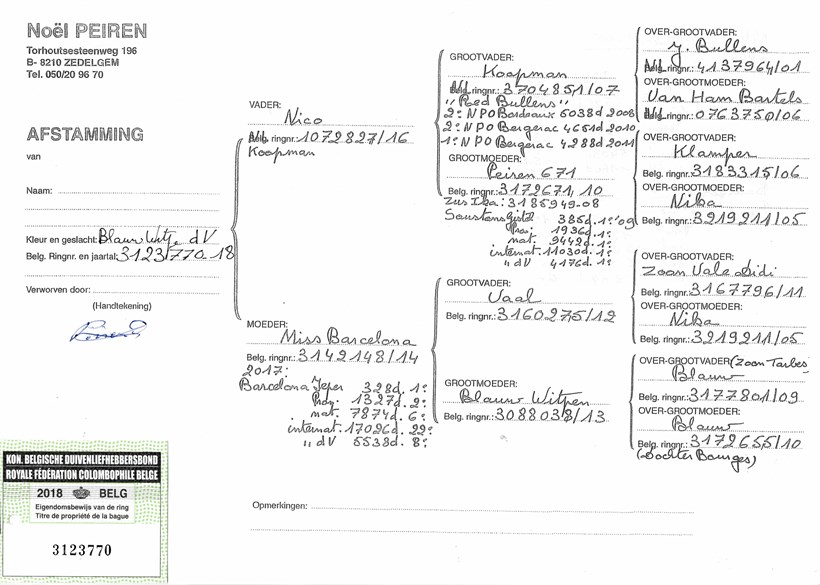 Noël PEIREN
Torhoutsesteenweg 196
B- 8210 ZEDELGEM
Tel. 050/20 96 70
AFSTAMMING
van
Naam:
Kleur en geslacht: Blauw Witp. dV
Belg. Ringnr. en jaartal: 3123770.18
Verworven door:
(Handtekening)
KON. BELGISCHE DUIVENLIEFHEBBERSBOND
ROYALE FÉDÉRATION COLOMBOPHILE BELGE
2018 BELG
Eigendomsbewijs van de ring
Titre de propriété de la bague
3123770
VADER:
Nico
Ndl. ringnr.: 1072827/16
Koopman
MOEDER:
Miss Barcelona
Belg. ringnr.: 3142148/14
2017:
Barcelona Ieper 328d. 1e
Prov. 1327d. 2e
nat. 7874d. 6e
internat. 17026d. 22e
,, dV 5538d. 8e
GROOTVADER:
Koopman
Ndl. ringnr.: 3704851/07
"Poed Bullens"
2e NPO Bordeaux 5038d 2008
2e NPO Bergerac 4651d 2010
1e NPO Bergerac 4288d 2011
GROOTMOEDER:
Peiren 671
Belg. ringnr.: 3172671, 10
Zus Ika: 3185949-08
385d. 1e '09
Prov. 1936d. 1e
nat. 9442d. 1e
internat. 11030d. 1e
,, dV 4176d. 1e
GROOTVADER:
Vaal
Belg. ringnr.: 3160275/12
GROOTMOEDER:
Blauw Witpen
Belg. ringnr.: 3088038/13
OVER-GROOTVADER:
J. Bullens
Ndl. ringnr.: 4137964/01
OVER-GROOTMOEDER:
Van Ham Bartels
Ndl. ringnr.: 0763750/06
OVER-GROOTVADER:
Klamper
Belg. ringnr.: 3183315/06
OVER-GROOTMOEDER:
Nika
Belg. ringnr.: 3219211/05
OVER-GROOTVADER:
Zoon Vale Didi
Belg. ringnr.: 3167796/11
OVER-GROOTMOEDER:
Nika
Belg. ringnr.: 3219211/05
OVER-GROOTVADER: (Zoon Tarbes)
Blauw
Belg. ringnr.: 3177801/09
OVER-GROOTMOEDER:
Blauw
Belg. ringnr.: 3172655/10
(Dochter Bourges)
Opmerkingen: